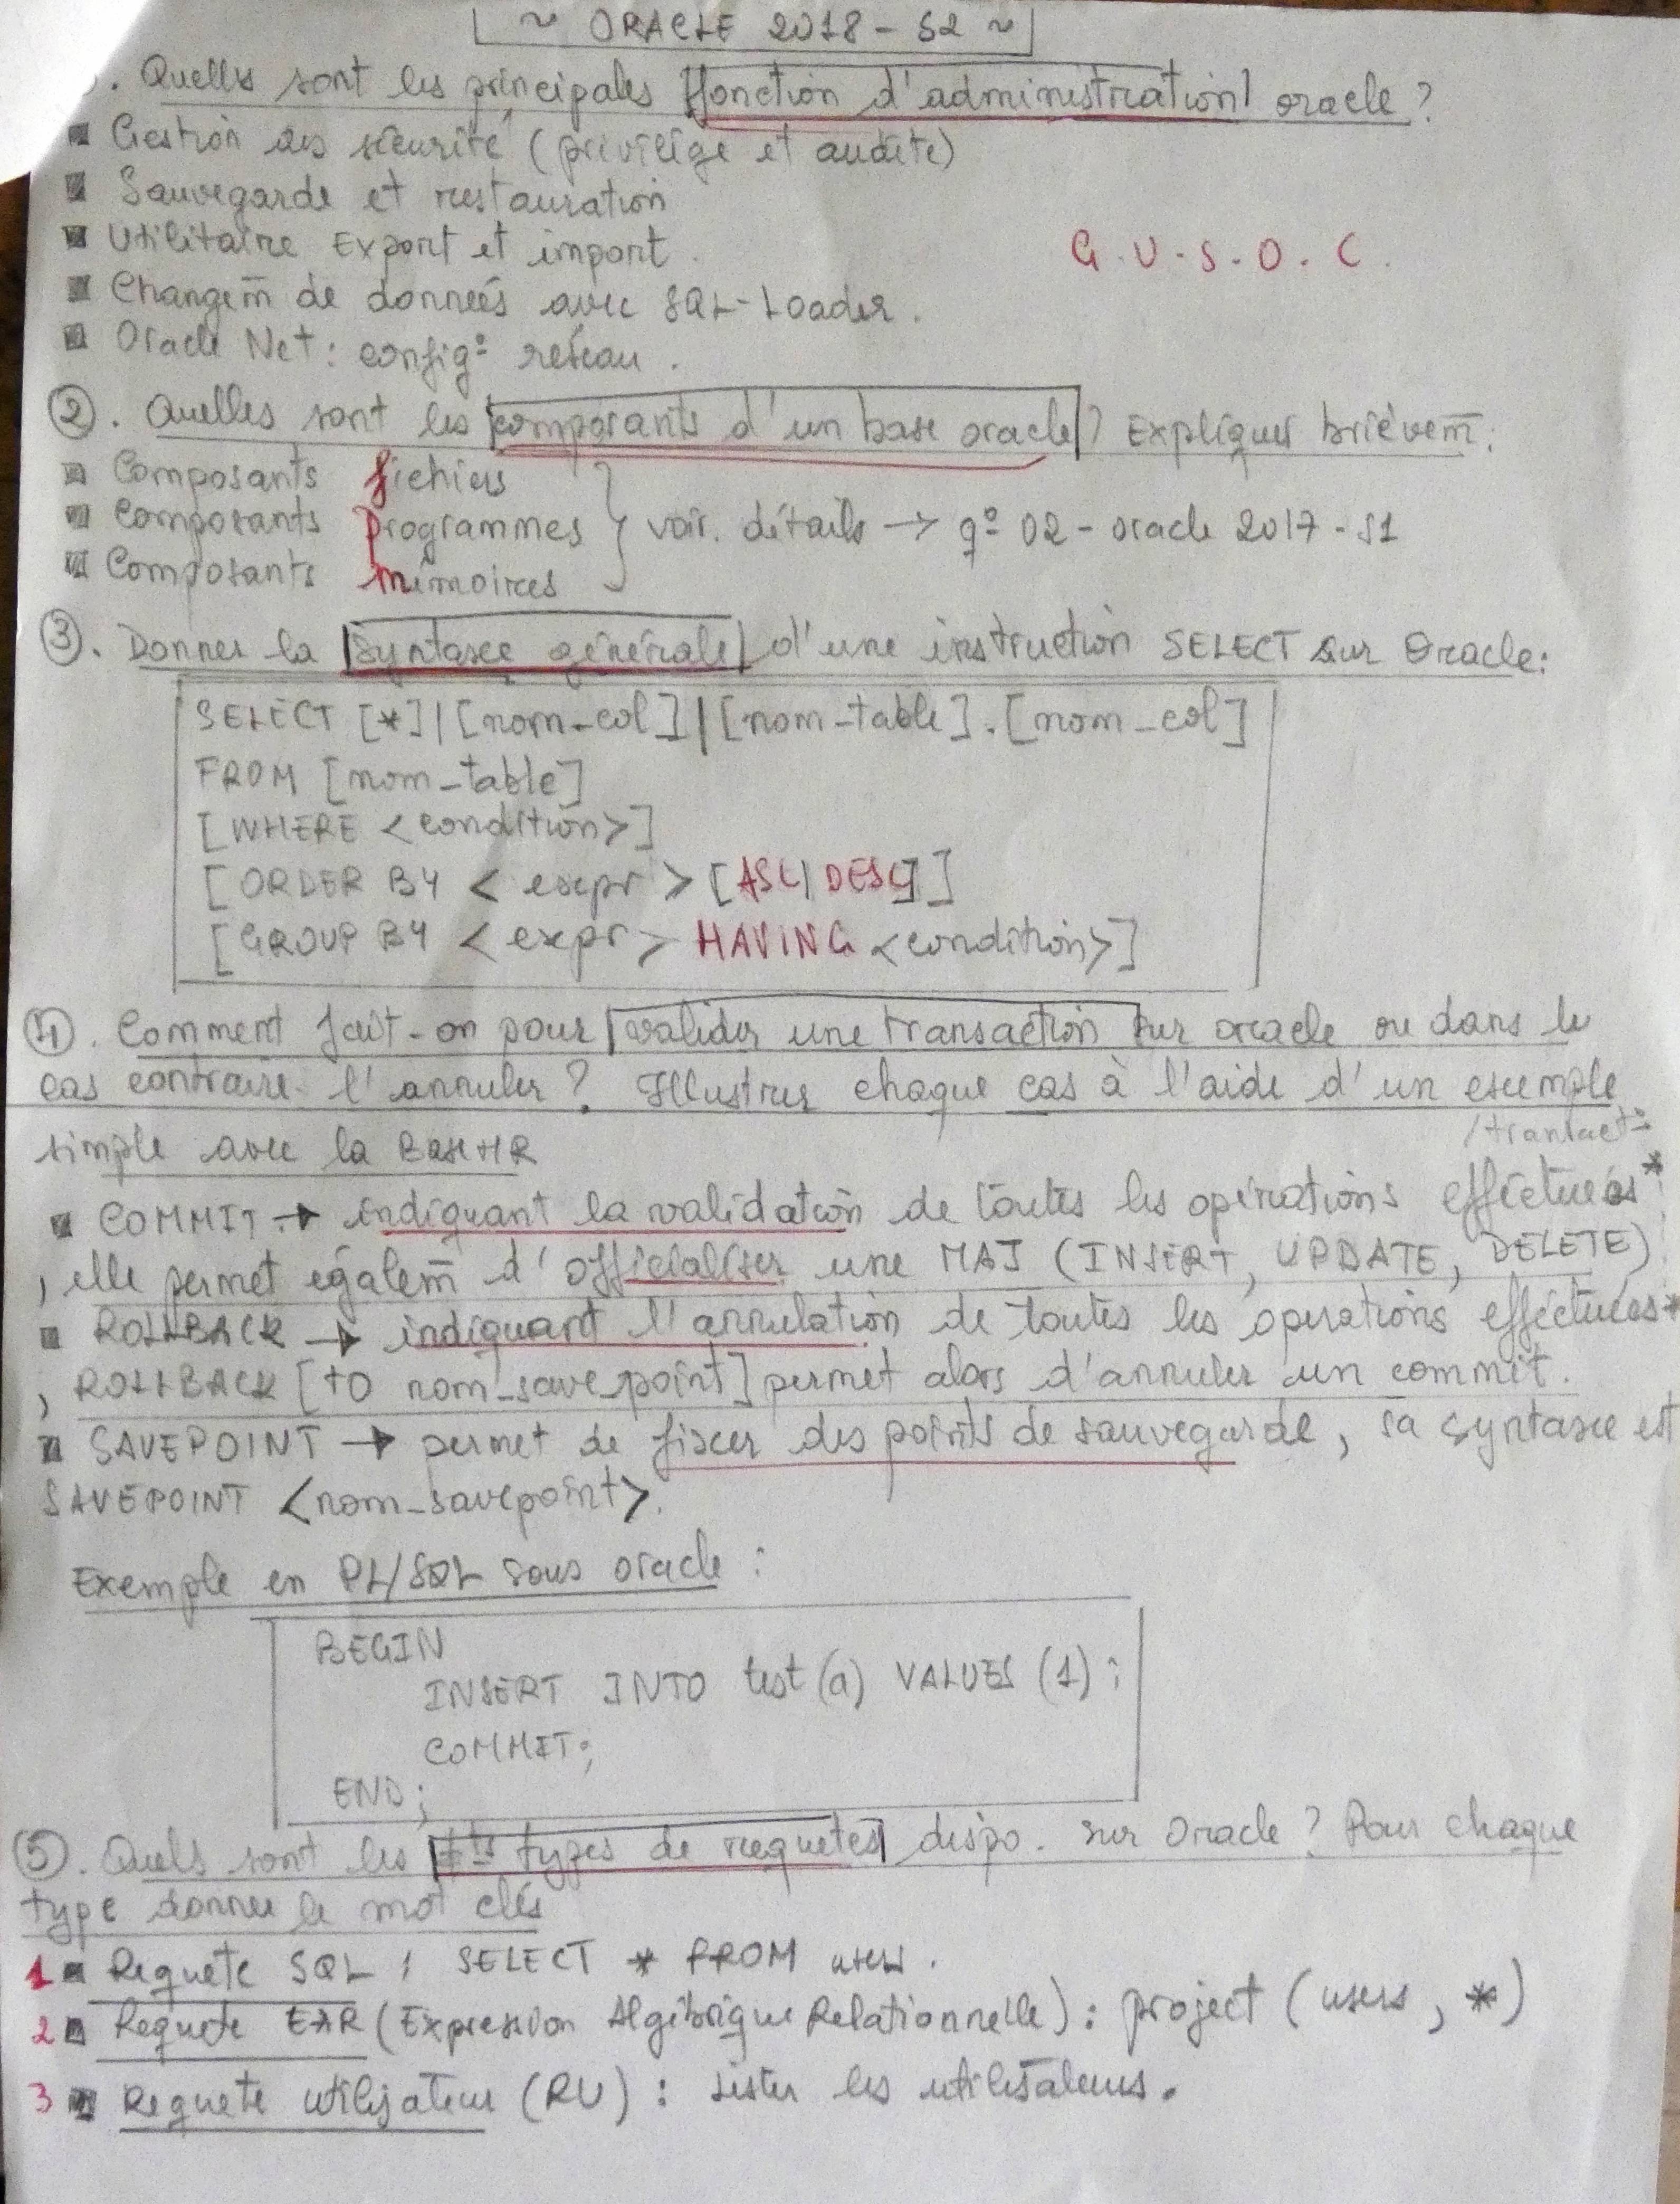 ~ ORACLE 2018 - S2 ~
. Quelles sont les principales fonction d'administration oracle ?
Gestion des sécurité (privilige et audite)
Sauvegarde et restauration
Utilitaire Export et import.
G. U. S. O. C.
Changem̄ de données avec SQL-Loader.
Oracle Net : config° réseau.
②. Quelles sont les composants d'un base oracle ? Expliquer brièvem̄ :
Composants fichiers
Composants programmes } voir. détails → q° 02 - oracle 2017 - S1
Composants mémoires
③. Donner la syntaxe générale d'une instruction SELECT sur Oracle :
SELECT [*] | [nom_col] | [nom_table].[nom_col]
FROM [nom_table]
[WHERE <condition>]
[ORDER BY <expr> [ASC | DESC]]
[GROUP BY <expr> HAVING <condition>]
④. Comment fait-on pour valider une transaction sur oracle ou dans le
cas contraire l'annuler ? Illustrer chaque cas à l'aide d'un exemple
simple avec la Base HR
/tranfact°
COMMIT → indiquant la validation de toutes les opérations efféctuées *
, elle permet égalem̄ d'officialiser une MAJ (INSERT, UPDATE, DELETE)
ROLLBACK → indiquant l'annulation de toutes les operations efféctuées *
, ROLLBACK [to nom_save_point] permet alors d'annuler un commit.
SAVEPOINT → permet de fixer des points de sauvegarde, sa syntaxe est
SAVEPOINT <nom_savepoint>.
Exemple en PL/SQL sous oracle :
BEGIN
INSERT INTO test (a) VALUES (1) ;
COMMIT;
END;
⑤. Quels sont les ≠ts types de requetes dispo. sur Oracle ? Pour chaque
type donner le mot clés
1 Requete SQL : SELECT * FROM users.
2 Requete EAR (Expression Algébrique Relationnelle) : project (users, *)
3 Requete utilisateur (RU) : Lister les utilisateurs.